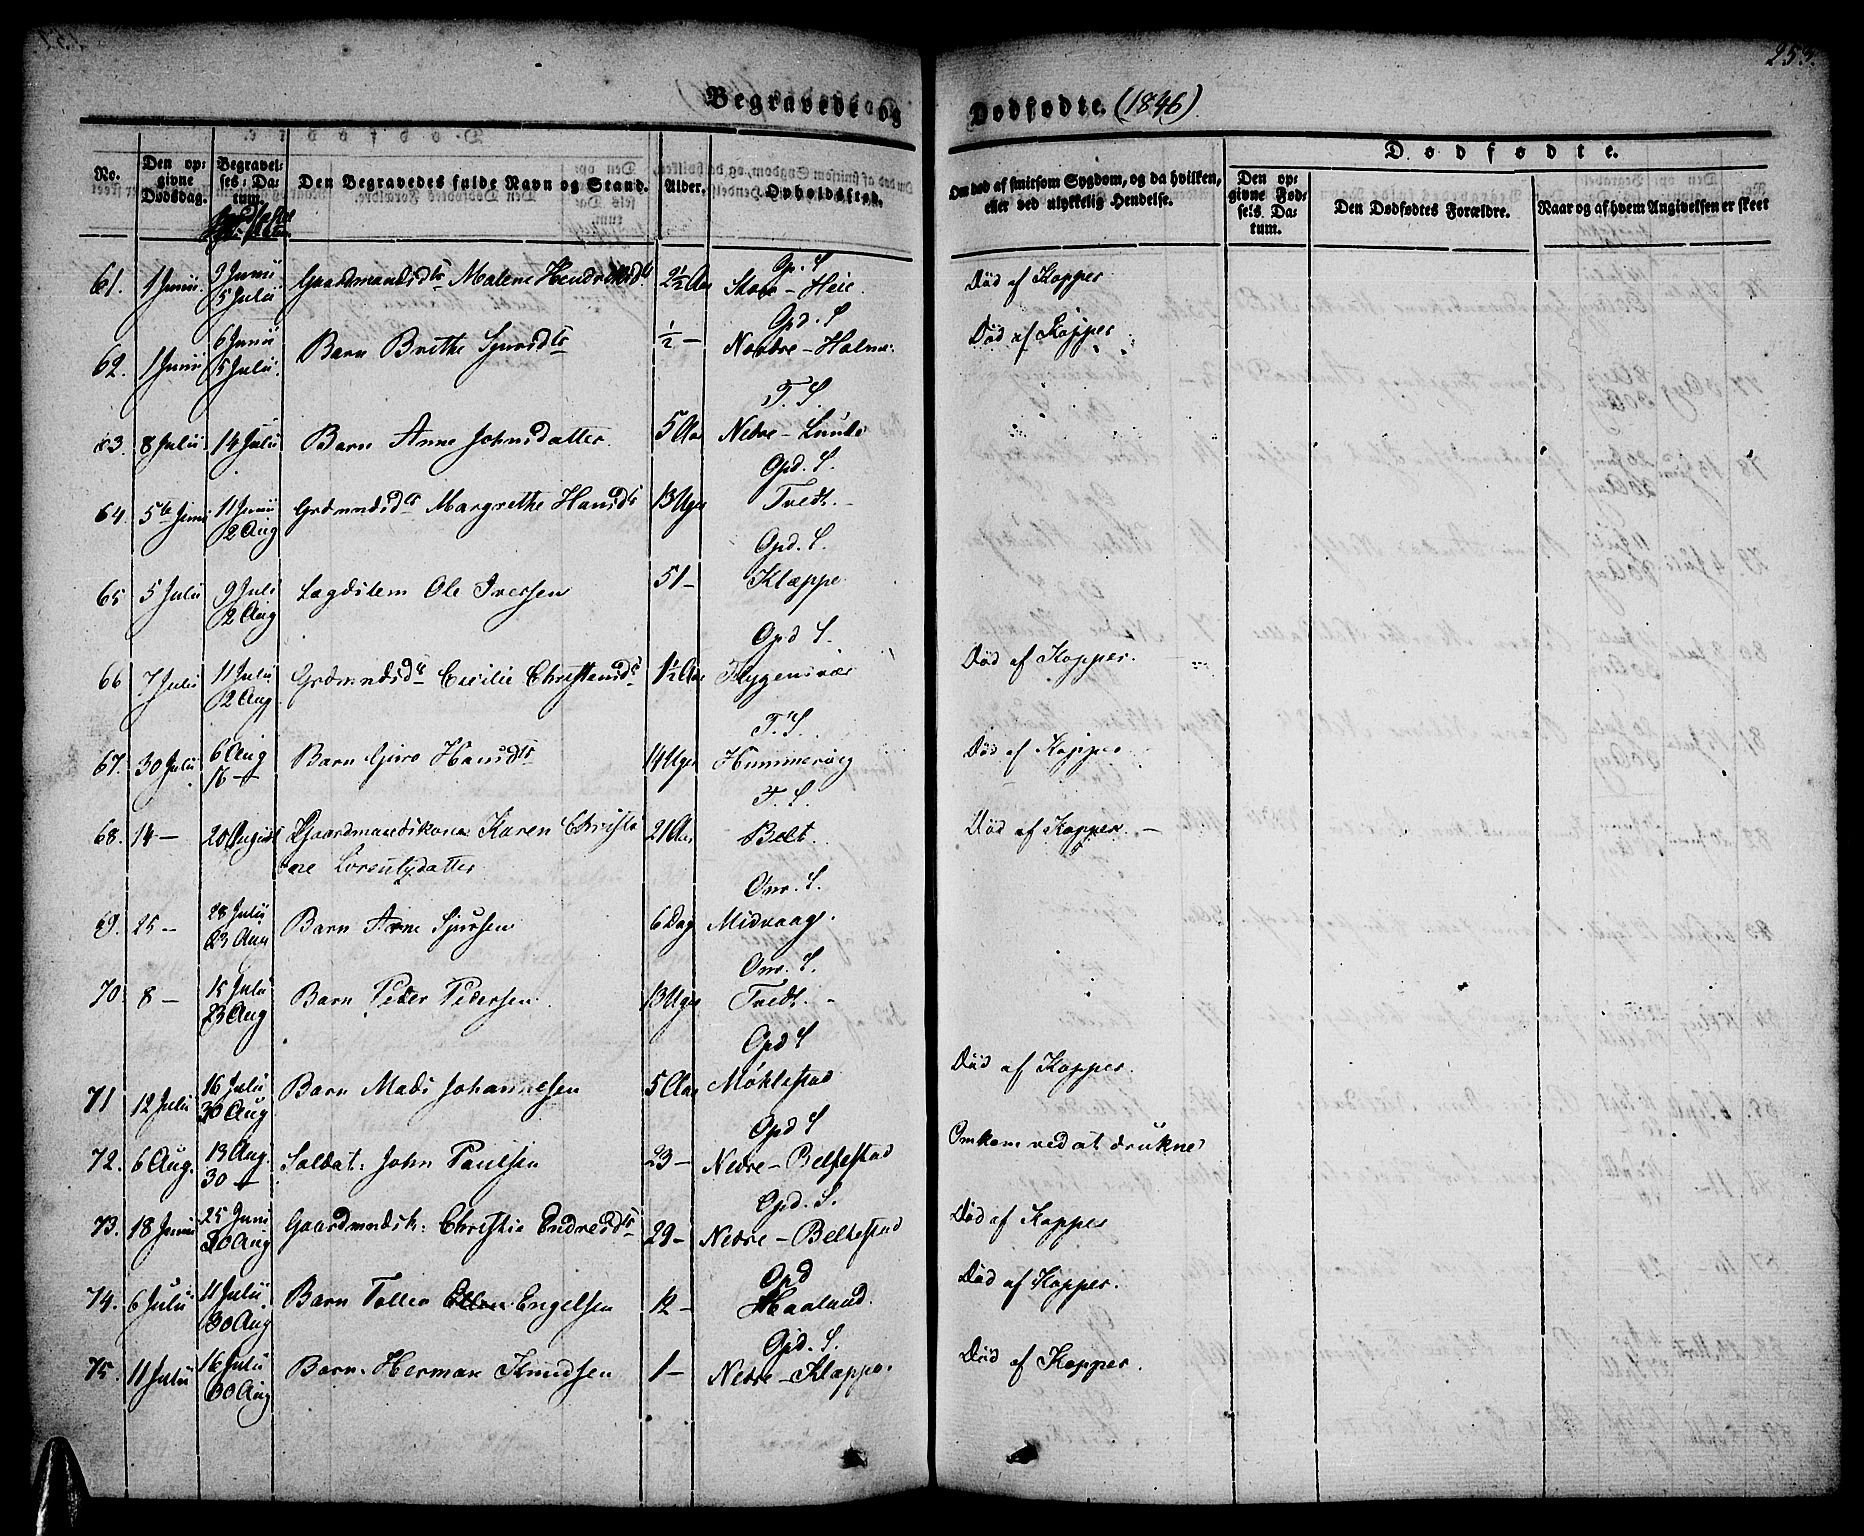 253.
Begravede og Dødfødte. (1846)
No.
Den opgivne Dødsdag.
Begravelses-Datum.
Den Begravedes fulde Navn og Stand.
Alder.
Opholdssted.
Om død af smitsom Sygdom, og da hvilken, eller ved ulykkelig Hendelse.
Dødfødte.
Den opgivne Fødsels-Datum.
Den Dødfødtes Forældre.
Naar og af hvem Angivelsen er skeet
61. 1 Junii. 9 Junii 5 Julii Gaardmandsdtr Malene Hendriksdtr 2½ Aar Gp. S. Store-Heie. Død af Kopper
62. 1 Junii 6 Junii 5 Julii. Barn Brithe Sjursdtr ½ - Gpd. S. Nordre-Holme. Død af Kopper
63. 8 Julii. 14 Julii Barn Anne Johnsdatter 5 Aar T. S. Nedre-Lunde
64. 5te Junii 11 Junii 2 Aug Grdmndsdtr Margrethe Hansdtr 13 Uger Gpd. S. Tvedt.
65 5 Julii 9 Juli 2 Aug Lægdslem Ole Iversen 51 - Gpd. S. Klæppe
66 7 Julii 11 Julii 2 Aug. Grdmndsdtr Cecilie Christensdtr 1½ Aar Gpd S. Flygensvær Død af Kopper.
67. 30 Julii 6 Aug 16 - Barn Guro Hansdtr 14 Uger T. S. Hummervig Død af Kopper
68. 14 - 20 August Gaardmandskone Karen Christi
ane Lorentzdatter 21 Aar T. S. Belt. Død af Kopper. -
69. 25 - 28 Julii 23 Aug Barn Arne Sjursen 6 Dag Onr. S. Midvaage.
70 8 - 15 Julii 23 Aug Barn Peder Pedersen. 13 Uger Onr. S. Tvedt. -
71 12 Julii 16 Julii 30 Aug Barn Mads Johannesen 5 Aar Gpd S Møklestad Død af Kopper.
72. 6 Aug. 13 Aug. 30 - Soldat: John Paulsen 23 - Gpd S Nedre-Belsestad Omkom ved at drukne
73. 18 Junii 25 Juni 30 Aug Gaardmndsk. Christie Endresdtr 29 - Gpd. S. Nedre-Belsestad Død af Kopper
74. 6 Julii 11 Julii. 30 Aug Barn Tollev Engelsen 12 - Gpd Haaland. Død af Kopper.
75. 11 Julii 16 Julii 30 Aug Barn. Herman Knudsen 1 - Gpd. S. Nedre-Klæppe. Død af Kopper.